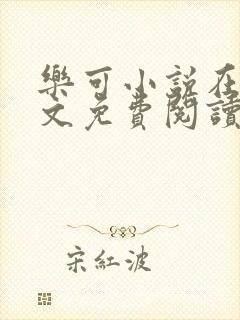 樂可小說在
文免費閱讀
宋紅波